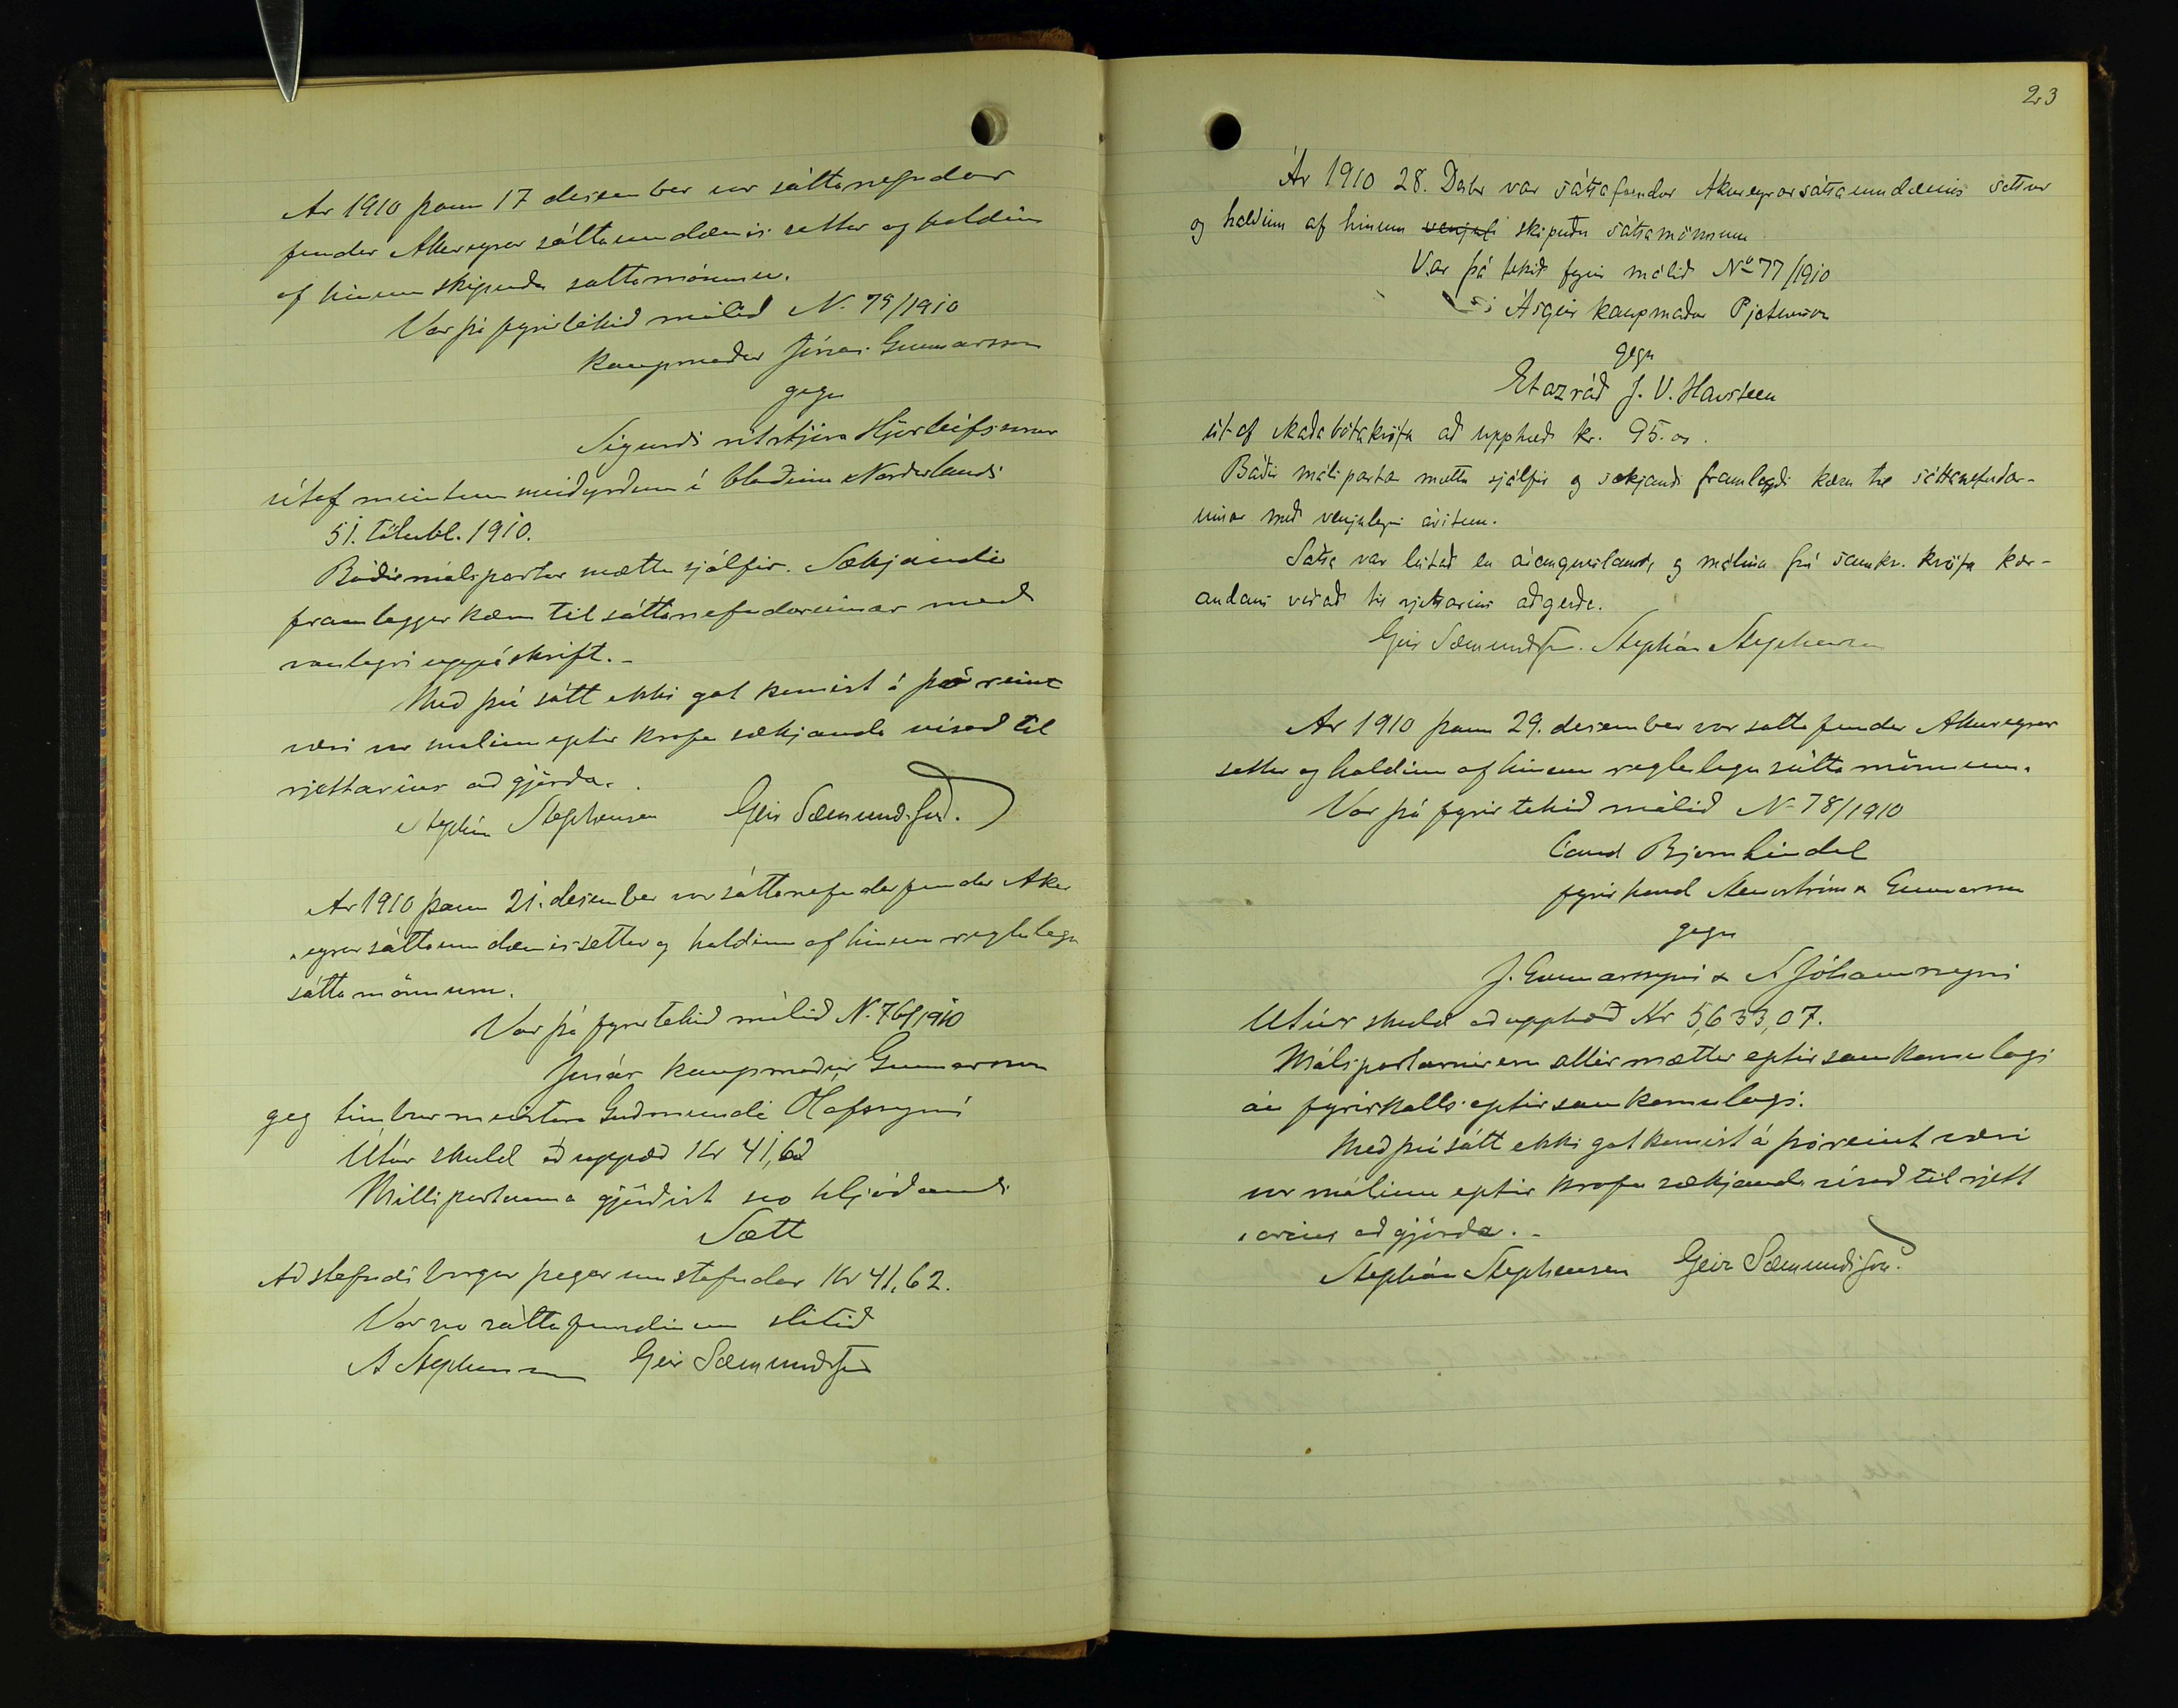 Ar 1910 þann 17 desember var sáttanefndar
fundur Akureyrar sáttaumdæmis settur og haldinn
af hinum skipuðu sattamönnum.
Var þá fyrirtekið málið N. 75/1910
kaupmaður Jónas Gunnarsson
gegn
Sigurði ritstjóra Hjörleifssyni
útaf meintum meiðyrðum í blaðinu Norðurlandi
51. tölubl. 1910.
Báðir málspartar mættu sjálfir. Sækjandi
framleggur kæru til sáttanefndarinnar með
vanlegri uppáskrift. -
Með því sátt ekki gat komist á þó reint
væri var malinu eptir krofu sækjanda vísað til
rjettarins aðgjörða.
Stephán Stephensen Geir Sæmundsson.
Ar 1910 þann 21. desember var sáttanefndarfundur Akur
eyrar sáttaumdæmis settur og haldinn af hinum reglulegu
sáttamönnum.
Var þá fyrirtekið málið N. 76/1910
Jónas kaupmaður Gunnarsson
geg timburmeistara Guðmundi Ólafssyni
Útúr skuld að uppæð Kr 41,62
Milli partanna gjörðist svo hljóðandi
Sætt
Að stefndi borgar þegar umstefndar Kr 41,62.
Var svo sáttafundinum slitið
St Stephensen Geir Sæmundsson
23
Ár 1910 28. Desbr var sáttafundur Akureyrarsáttaumdæmis settur
og haldinn af hinum venjul skipuðu sáttamönnum
Var þá tekið fyrir málið No 77/1910
Ásgeir kaupmaður Pjetursson
gegn
Etazráð J. V. Havsteen
út af skaðabótakröfu að upphæð kr. 95.00.
Báðir málspartar mættu sjálfir og sækjandi framlagði kæru til sáttanefndar-
innar með venjulegri áritun.
Sátta var leitað en árangurslaust, og málinu frá samkv. kröfu kær-
andans vísað til rjettarins aðgerða.
Geir Sæmundsson. Stephán Stephensen
Ar 1910 þann 29. desember var sattafundur Akureyrar
settur og haldinn af hinum reglulegu sátta mönnum.
Var þá fyrirtekið málið N- 78/1910
Cand Bjorn Lindal
fyrir hönd Gunnarsson
gegn
J. Gunnarssyni & S Jóhannssyni
Utúr skuld að upphæð Kr 5,633,07.
Málspartarnir eru allir mættir eptir samkomulagi
án fyrirkalls eptir samkomulagi.
Með því sátt ekki gat komist á þó reint væri
var málinu eptir krofu sækjanda vísað til rjett
arins aðgjörða. -
Stephán Stephensen Geir Sæmundsson.